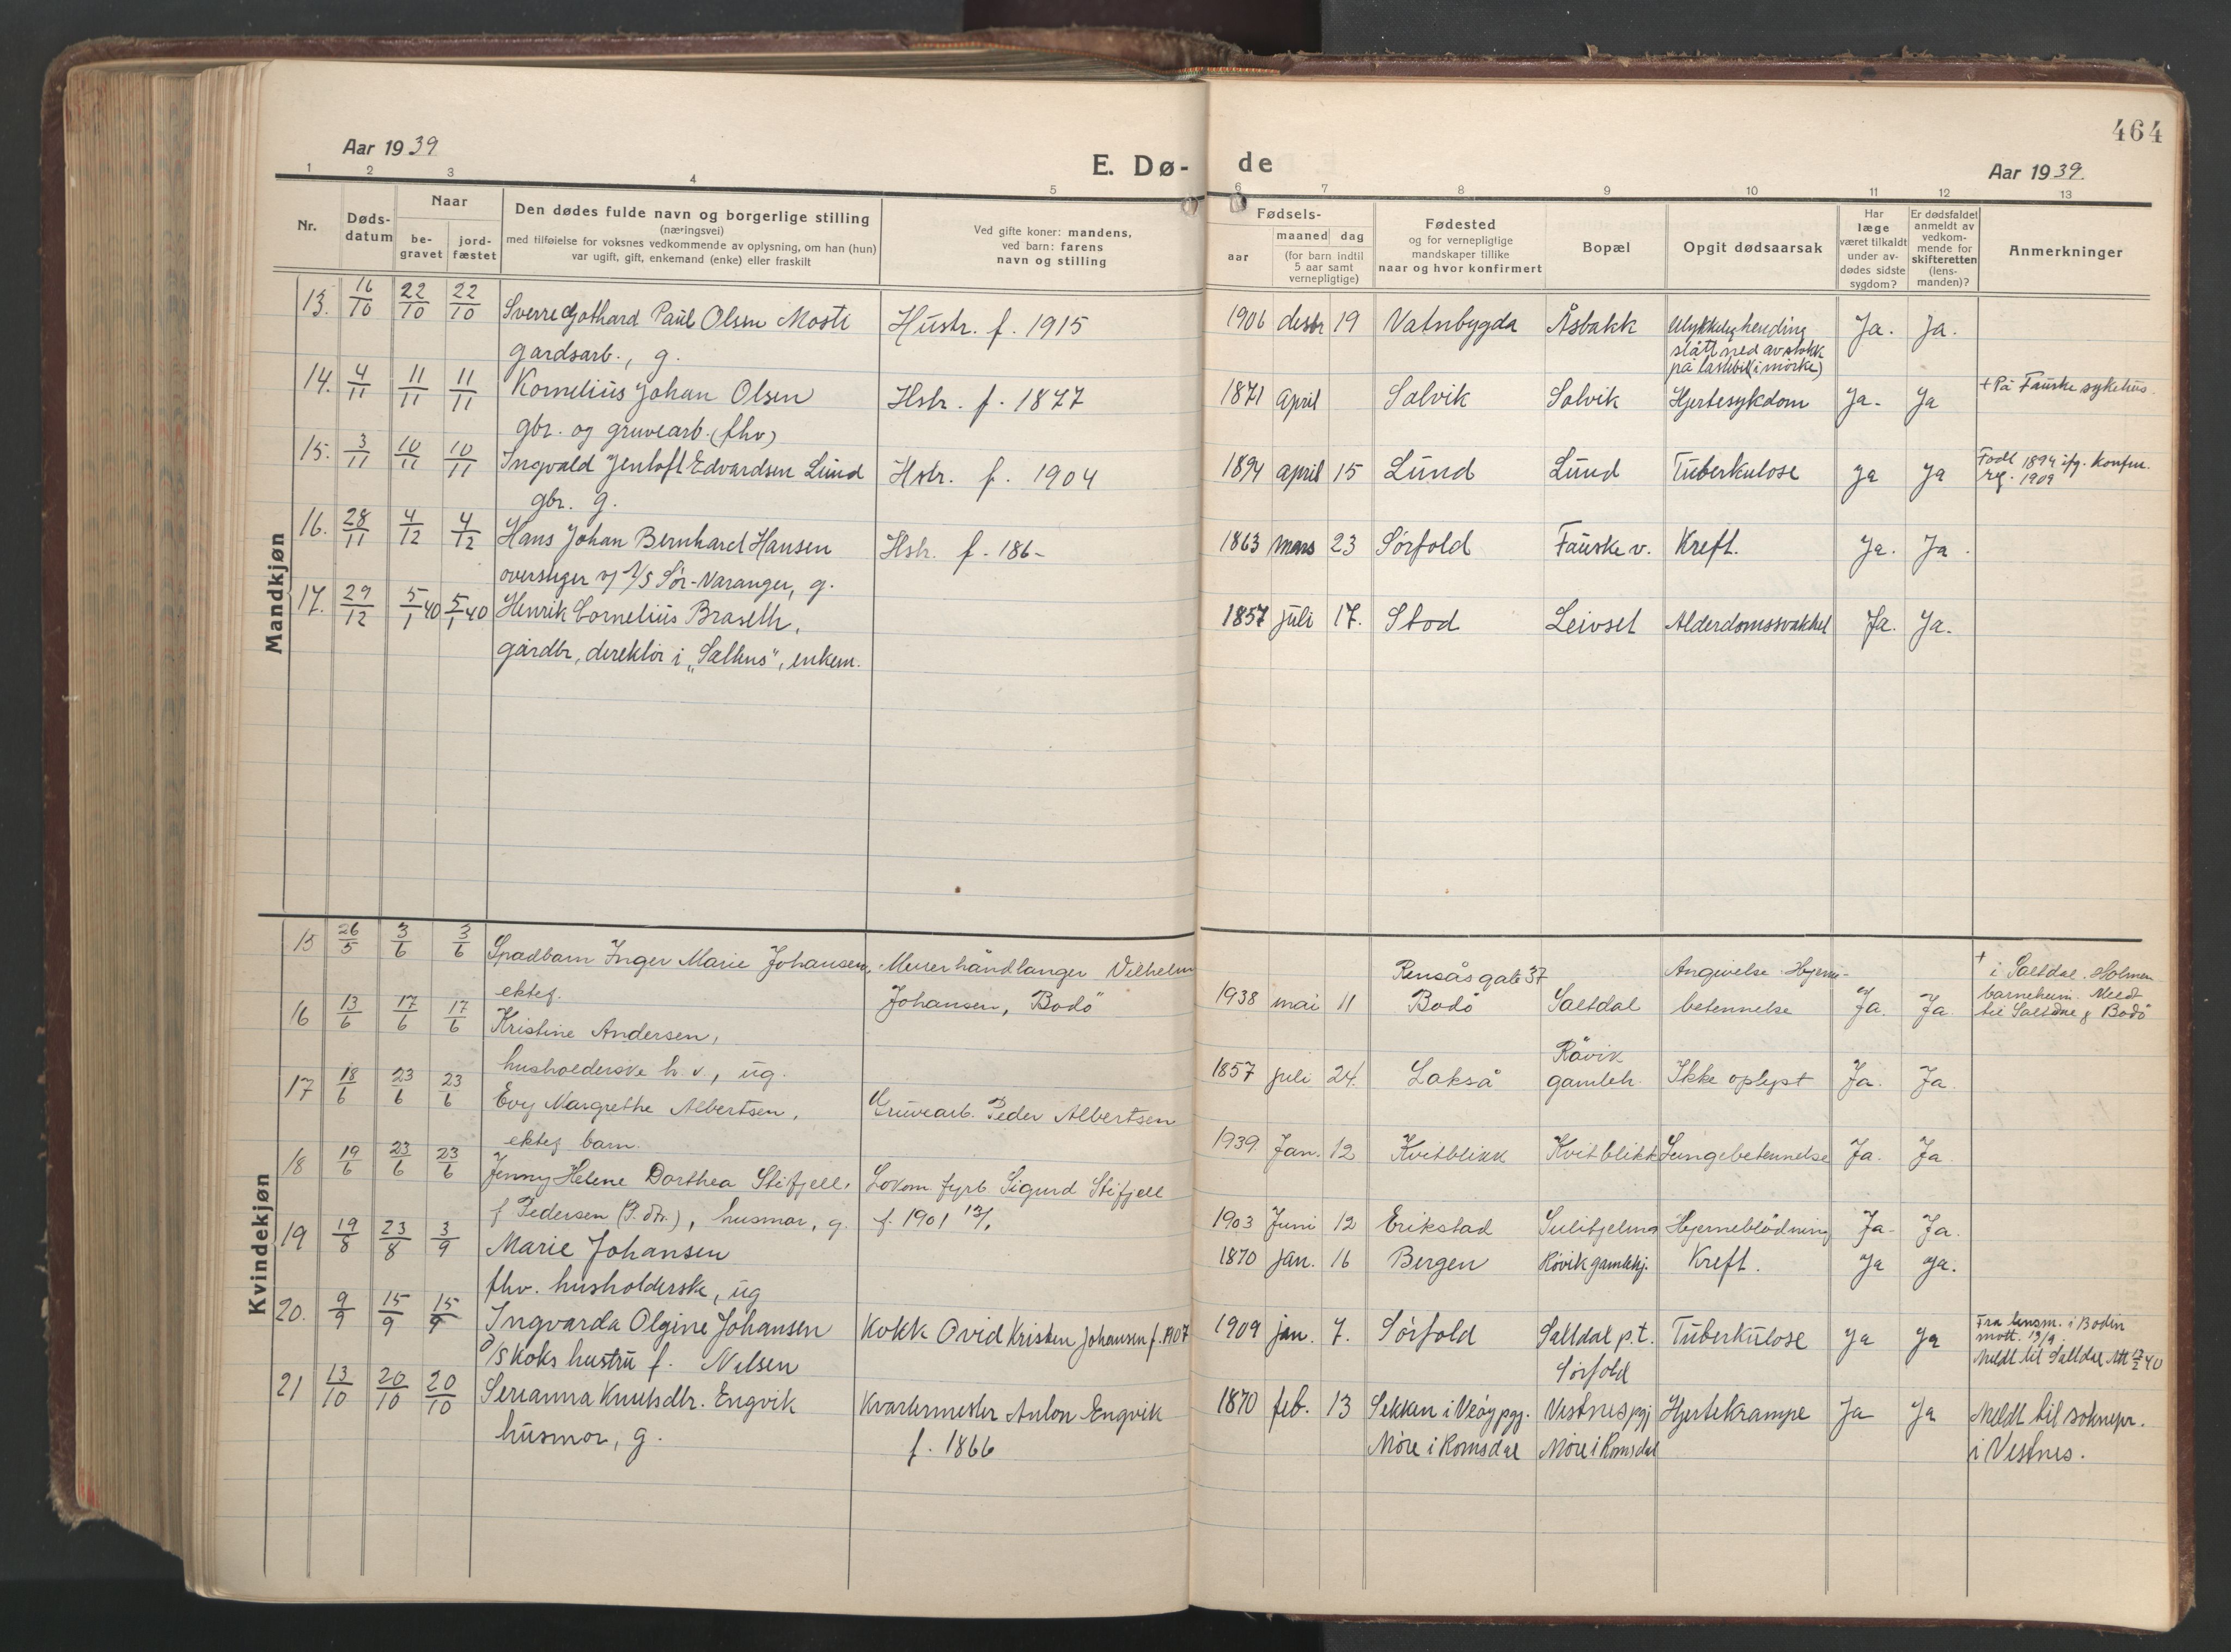 464
Aar 1939
E. Dø-
de
Aar 1939.
1 2 3 4 5 6 7 8 9 10 11 12 13
Nr.
Døds-
datum
Naar
be-
gravet
jord-
fæstet
Den dødes fulde navn og borgerlige stilling
(næringsvei)
med tilføielse for voksnes vedkommende av oplysning, om han (hun)
var ugift, gift, enkemand (enke) eller fraskilt
Ved gifte koner: mandens,
ved barn: farens
navn og stilling
Fødsels-
aar
maaned dag
(for barn indtil
5 aar samt
vernepligtige)
Fødested
og for vernepligtige
mandskaper tillike
naar og hvor konfirmert
Bopæl
Opgit dødsaarsak
Har
læge
været tilkaldt
under av-
dødes sidste
sygdom?
Er dødsfaldet
anmeldt av
vedkom-
mende for
skifteretten
(lens-
manden)?
Anmerkninger
Mandkjøn
13. 16/10 22/10 22/10 Sverre Gothard Paul Olsen Mosti Hustr. f. 1915 1906 desbr 19 Vatnbygda Åsbakk Ulykkelig hending Ja. Ja.
gardsarb., g. slått ned av stokk
på lastebil (i mørke)
14. 4/11 11/11 11/11 Kornelius Johan Olsen Hstr. f. 1877 1871 april Salvik Solvik Hjertesykdom Ja. Ja + På Fauske sykehus.
gbr. og gruvearb. (fhv)
15. 3/11 10/11 10/11 Ingvald Jentoft Edvardsen Lund Hstr. f. 1904 1894 april 15 Lund Lund Tuberkulose Ja Ja Født 1894 ifg. Konfm.
gbr. g. reg. 1909
16. 28/11 4/12 4/12 Hans Johan Bernhard Hansen Hstr. f. 186- 1863 mars 23 Sørfold Fauske v. Kreft. Ja. Ja.
overstiger v/ A/S Sør-Varanger, g.
17. 29/12 5/1 40 5/1 40 Henrik Cornelius Braseth, 1857 juli 17. Stod Leivset Alderdomssvakhet Ja. Ja.
gårdbr, direktør i "Salhus", enkem.
Kvindekjøn
15 26/5 3/6 3/6 Spædbarn Inger Marie Johansen, Murerhåndlanger Vilhelm Rensåsgate 37 Angivelse Hjerne- + i Saltdal. Holmen
ektef. Johansen, Bodø 1938 mai 11 Bodø Saltdal betennelse Ja. Ja. barneheim. Meldt
til Saltdal & Bodø
16 13/6 17/6 17/6 Kristine Andersen, Røvik
husholderske h.v., ug. 1857 juli 24. Lakså gamleh. Ikke oplyst Ja. Ja.
17 18/6 23/6 23/6 Evy Margrethe Albertsen, Gruvearb. Peder Albertsen
ektef barn. 1939 Jan. 12 Kvitblikk Kvitblikk Lungebetennelse Ja. Ja.
18 19/6 23/6 23/6 Jenny Helene Dorthea Stifjell, Lokom fyrb. Sigurd Stifjell
f Pedersen (P.dtr.), husmor, g. f. 1901 1903 Juni 12 Erikstad Sulitjelma Hjerneblødning Ja. Ja.
19 19/8 23/8 3/9 Marie Johansen 1870 jan. 16 Bergen Røvik gamlehj. Kreft. Ja Ja.
fhv. husholdersk, ug
20. 9/9 15/9 15/9 Ingvarda Olgine Johansen Kokk Ovid Kristen Johansen f. 1907 1909 jan. 7. Sørfold Saltdal p.t. Tuberkulose Ja Ja Fra lensm. i Bodin
D/S koks hustru f. Nilsen Sørfold mott. 13/9.
Meldt til Saltdal
21 13/10 20/10 20/10 Serianna Knutsdtr. Engvik Kvartermester Anton Engvik 1870 feb. 13 Sekken i Veøy pgj. Vestnes pgj Hjertekrampe Ja Ja Meldt til soknepr.
husmor, g. f. 1866 Møre i Romsdal Møre i Romsdal i Vestnes.